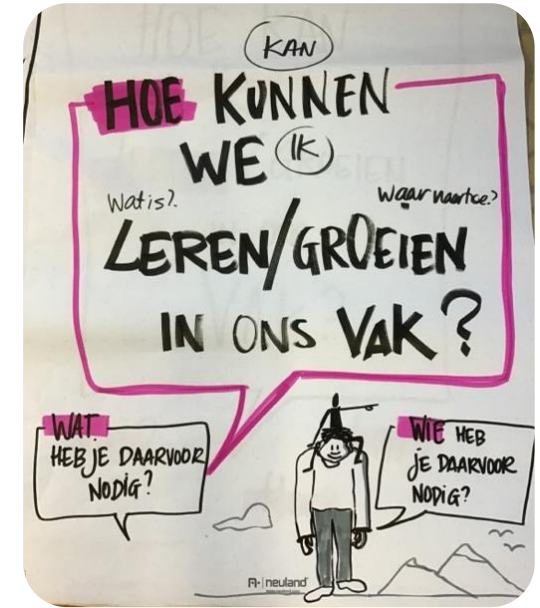 KAN
HOE KUNNEN
WE IK
Wat is?. Waar naartoe?
LEREN/GROEIEN
IN ONS VAK?
WAT
HEB JE DAARVOOR
NODIG?
WIE HEB
JE DAARVOOR
NODIG?
neuland